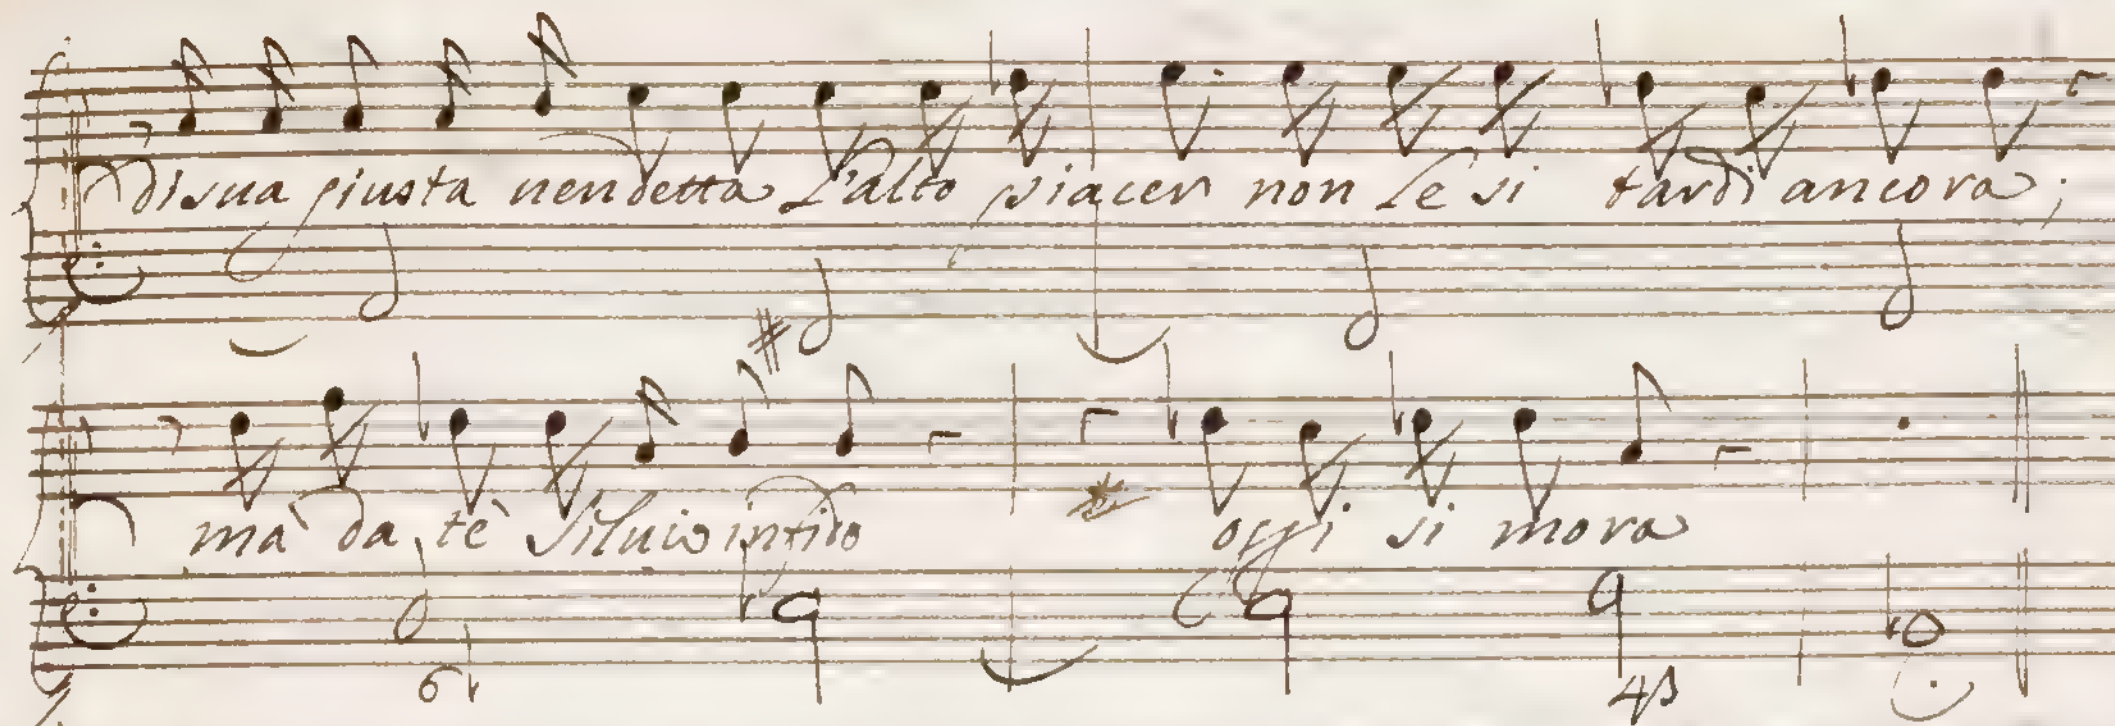 di sua giusta uendetta L'alto piacer non le si tardi ancora;
mà da tè Siluio infido oggi si mora
6
4 3